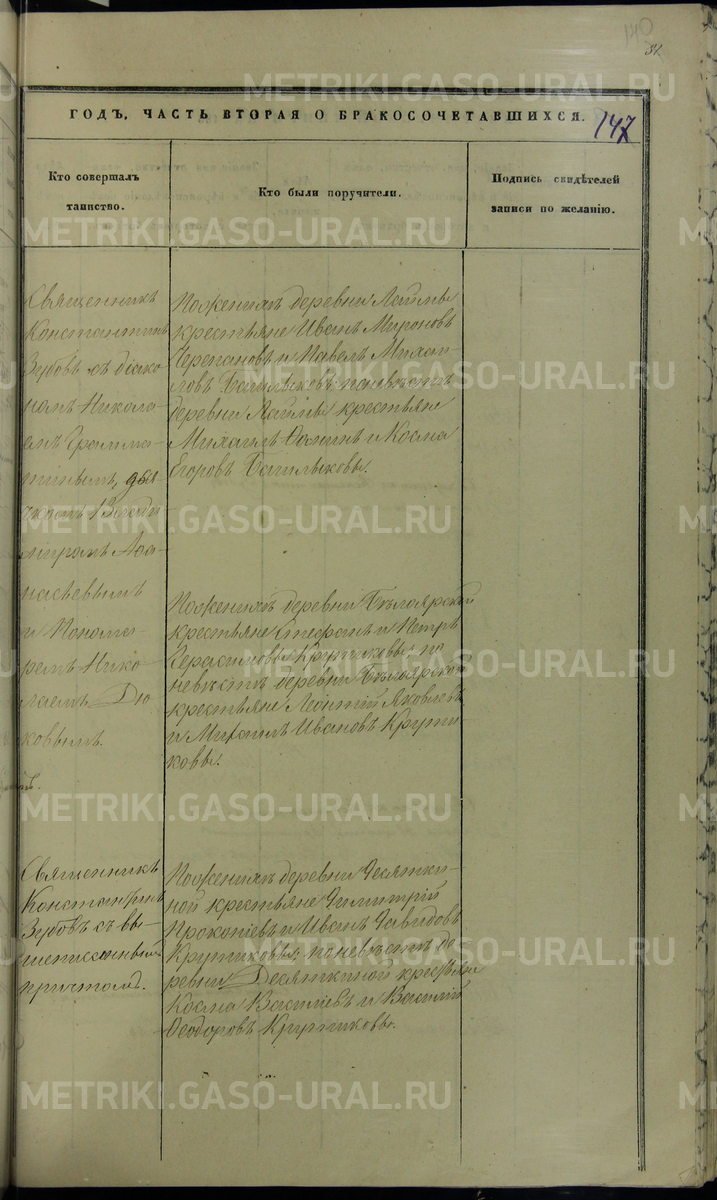 140
34
ГОДЪ, ЧАСТЬ ВТОРАЯ О БРАКОСОЧЕТАВШИХСЯ.
147
Кто совершалъ
таинство.
Кто были поручители.
Подпись свидѣтелей
записи по желанію.
Священникъ
Константинъ
Зубовъ съ діако-
номъ Никола-
емъ Грамма-
тинымъ, дья-
чкомъ Влади-
міромъ Афа-
насьевымъ
и Понома-
ремъ Нико-
лаемъ Дю-
ковымъ.
Пожениҳъ деревни
крестьяне Иванъ Мироновъ
Черепановъ и Павелъ Михаи-
ловъ поневѣстѣ
деревни крестьяне
Михаилъ и Косма
Егоровъ
Пожениҳъ деревни Бѣлоярской
крестьяне Стефанъ и Петръ
Герасимовы Крутиковы; по
невѣстѣ деревни Бѣлоярской
крестьяне Леонтій Яковлевъ
и Михаилъ Ивановъ Крути
ковы.
Священникъ
Константинъ
Зубовъ съ вы-
шеписанный
причтомъ.
Пожениҳъ деревни Десятки-
ной крестьяне Димитрій
Прокопіевъ и Иванъ Давидовъ
Крутиковы; поневѣстѣ де
ревни Десяткиной крестьяне
Косма Василіевъ и Василій
Ѳеодоровъ Крутиковы.
METRIKI.GASO-URAL.RU